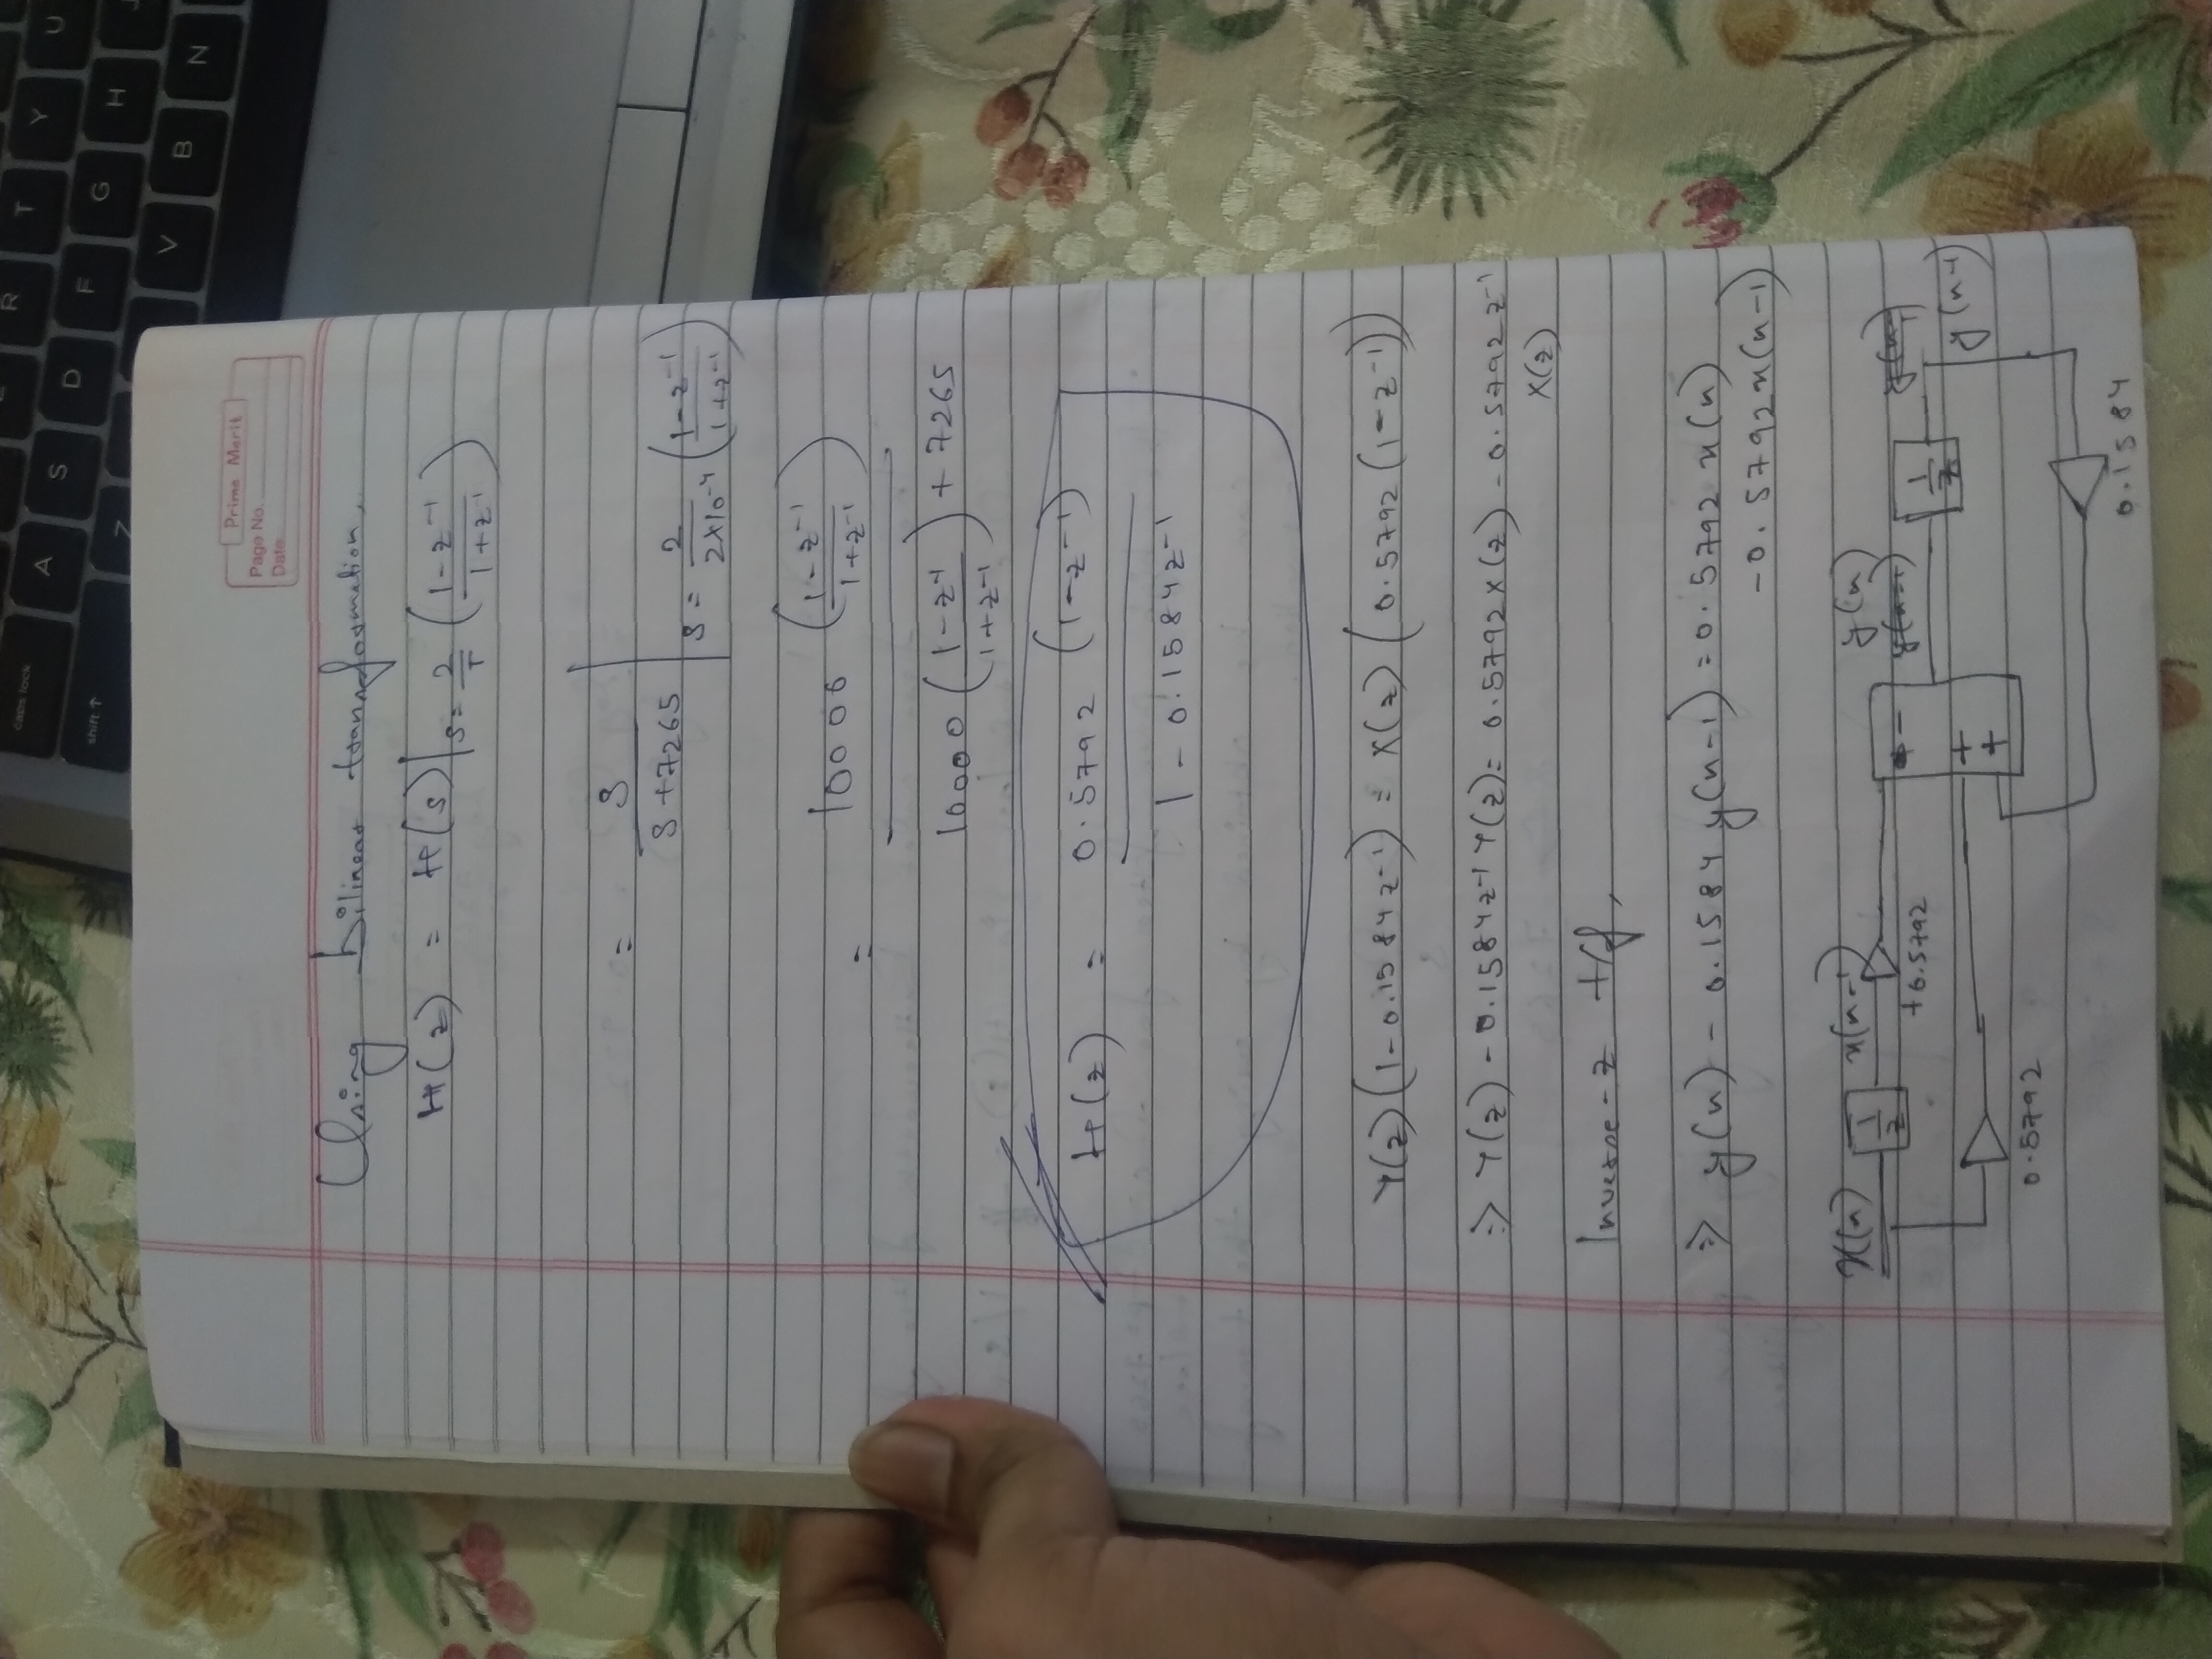 Prime Merit
Page No.
Date
Using bilinear transformation,
H(z) = H(s)|s=2/T (1-z⁻¹/1+z⁻¹)
= s/s+7265 | s = 2/2×10⁻⁴ (1-z⁻¹/1+z⁻¹)
= 10000 (1-z⁻¹/1+z⁻¹)
10000 (1-z⁻¹/1+z⁻¹) + 7265
H(z) = 0.5792 (1-z⁻¹)
1 - 0.1584z⁻¹
Y(z)(1-0.1584z⁻¹) = X(z)(0.5792(1-z⁻¹))
⇒ Y(z) - 0.1584z⁻¹Y(z) = 0.5792X(z) - 0.5792z⁻¹
X(z)
Inverse-z t/f,
⇒ y(n) - 0.1584y(n-1) = 0.5792x(n)
-0.5792x(n-1)
x(n) 1/z x(n-1) y(n) 1/z y(n-1)
+0.5792 - + +
0.5792 0.1584
caps lock
shift ↑
A S D F G H
Z V B N
R T Y U